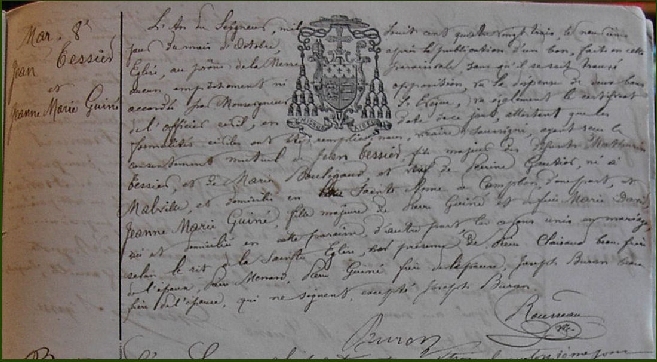 Mar. 8e
Jean
Tessier
et
Jeanne Marie Guiné
L'An du Seigneur, mil huit cent quatre vingt trois, le neuvième
jour du mois d'octobre, après la publication d'un ban, faite en cette
Eglise, au prône de la Messe paroissiale, sans qu'il se soit trouvé
aucun empêchement ni opposition, vu la dispense de deux bans
accordée par Monseigneur l'Evêque, vu également le certificat
de l'officier civil, en date de ce jour, attestant que les
formalités civiles ont été remplies, nous, vicaire soussigné, ayant reçu le
consentement mutuel de Jean Tessier, fils majeur de Mathurin
Tessier, et de Marie et veuf de Perrine Gautier, né à
Malville et domicilié en Sainte Anne de Campbon, d'une part, et
Jeanne Marie Guiné, fille majeure de Pierre Guiné et de feue Marie
née et domiciliée en cette paroisse, d'autre part, les avons unis en mariage,
selon le rit de la Sainte Eglise, en présence de Pierre beau frère
de l'époux, Pierre Menard, Pierre Guiné, frère de l'épouse, Joseph Buron beau
frère de l'épouse, qui ne signent excepté Joseph Buron.
Rousseau
Buron